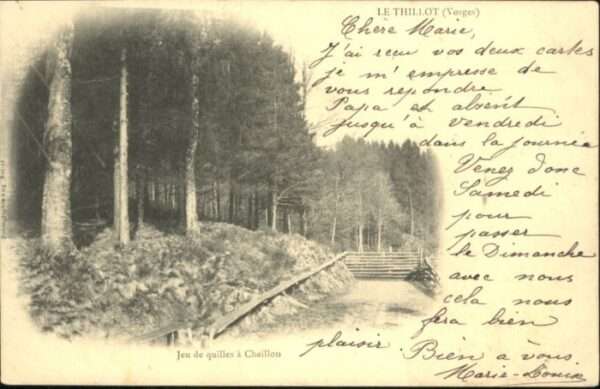 LE THILLOT (Vosges)
Chère Marie,
J'ai reçu vos deux cartes
je m'empresse de
vous repondre
Papa et absent
jusqu'à vendredi
dans la journée
Venez donc
Samedi
pour
passer
le Dimanche
avec nous
cela nous
fera bien
plaisir. Bien à vous
Marie-Louise
Jeu de quilles à Chaillon